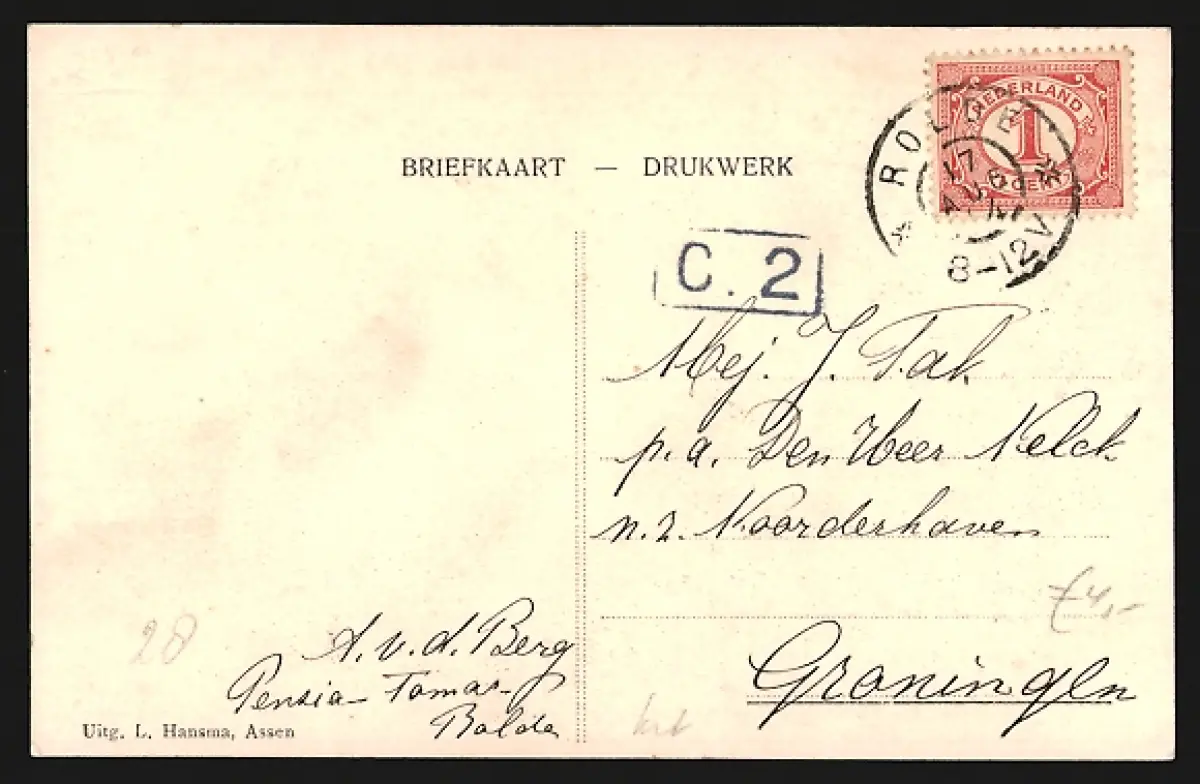 BRIEFKAART — DRUKWERK
NEDERLAND
1
CENT
ROLDE
17
AUG
8-12V
C. 2
Mej. J. Tak
p.a. Den Heer Nelck
n.z. Noorderhaven
Groningen
f 4,-
28
A. v. d. Berg
Rolde
Uitg. L. Hansma, Assen